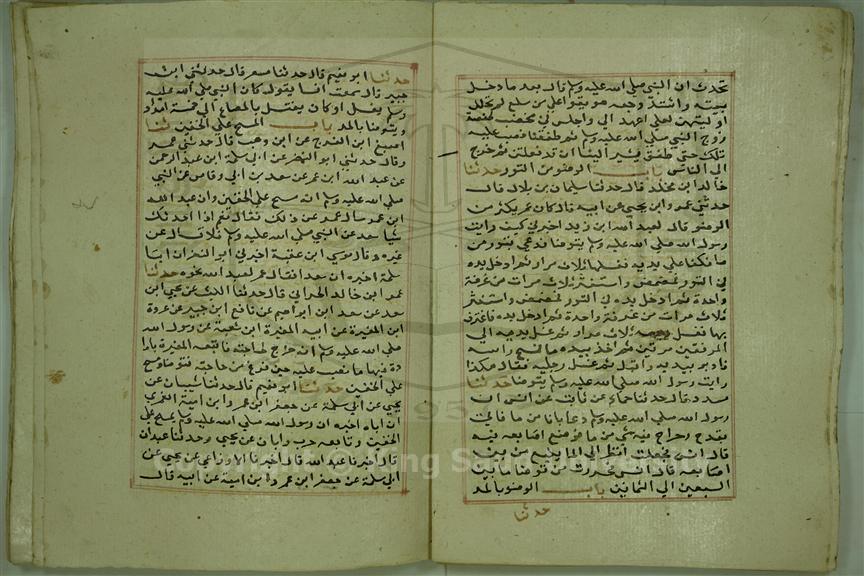 تحدث ان النبي صلي الله عليه وسلم قال بعد ما دخل
بيته واشتد وجعه هريقوا علي من سبع قرب لم تحلل
اوكيتهن لعلي اعهد الي واجلس في مخضب لحفصة
زوج النبي صلي الله عليه وسلم ثم طفقنا نصب عليه
تلك حتي طفق يشير الينا ان قد فعلتن ثم خرج
الي الناس باب الوضوء من التور حدثنا
خالد ابن مخلد قال حدثنا سليمان بن بلال قال
حدثني عمرو ابن يحيي عن ابيه قال كان عمي يكثر من
الوضو قال لعبد الله ابن زيد اخبرني كيف رايت
رسول الله صلي الله عليه وسلم يتوضا فدعي بتور من
ما فكفا علي يديه فغسلهما ثلاث مرار ثم ادخل يده
في التور فمضمض واستنثر ثلاث مرات من غرفة
واحدة ثم ادخل يده في التور فمضمض واستنثر
ثلاث مرات من غرفة واحدة ثم ادخل يده فاغترف
بها فغسل وجهه ثلاث مرار ثم غسل يديه الي
المرفقين مرتين ثم اخذ بيده ما فمسح راسه
فادبر بيديه واقبل ثم غسل رجليه فقال هكذا
رايت رسول الله صلي الله عليه وسلم يتوضا حدثنا
مسدد قال حدثنا حماد عن ثابت عن انس ان
رسول الله صلي الله عليه وسلم دعا بانا من ما فاتي
بقدح رحراح فيه شي من ما فوضع اصابعه فيه
قال انس فجعلت انظر الي الما ينبع من بين
اصابعه قال انس فحزرت من توضا ما بين
السبعين الي الثمانين باب الوضو بالمد
حدثنا
حدثنا ابو نعيم قال حدثنا مسعر قال حدثني ابن
جبير قال سمعت انسا يقول كان النبي صلي الله عليه
وسلم يغسل او كان يغتسل بالصاع الي خمسة امداد
ويتوضا بالمد باب المسح علي الخفين ثنا
اصبغ ابن الفرج عن ابن وهب قال حدثني عمرو
قال حدثني ابو النضر عن ابي سلمة ابن عبد الرحمن
عن عبد الله ابن عمر عن سعد بن ابي وقاص عن النبي
صلي الله عليه وسلم انه مسح علي الخفين وان عبد الله
ابن عمر سال عمر عن ذلك فقال نعم اذا حدثك
شيا سعد عن النبي صلي الله عليه وسلم فلا تسال عنه
غيره وقال موسي ابن عقبة اخبرني ابو النضر ان ابا
سلمة اخبره ان سعدا فقال عمر لعبد الله نحوه حدثنا
عمرو ابن خالد الحراني قال حدثنا الليث عن يحيي ابن
سعد عن سعد ابن ابراهيم عن نافع ابن جبير عن عروة
ابن المغيرة عن ابيه المغيرة ابن شعبة عن رسول الله
صلي الله عليه وسلم انه خرج لحاجته فاتبعه المغيرة بادا
وة فيها ما فصب عليه حين فرغ من حاجته فتوضا ومسح
علي الخفين حدثنا ابو نعيم قال حدثنا شيبان عن
يحيي عن ابي سلمة عن جعفر ابن عمرو ابن امية الضمري
ان اباه اخبره ان رسول الله صلي الله عليه وسلم يمسح علي
الخفين وتابعه حرب وابان عن يحيي وحدثنا عبدان
قال اخبرنا عبد الله قال اخبرنا الاوزاعي عن يحيي عن
ابي سلمة عن جعفر ابن عمرو ابن امية عن ابيه قال